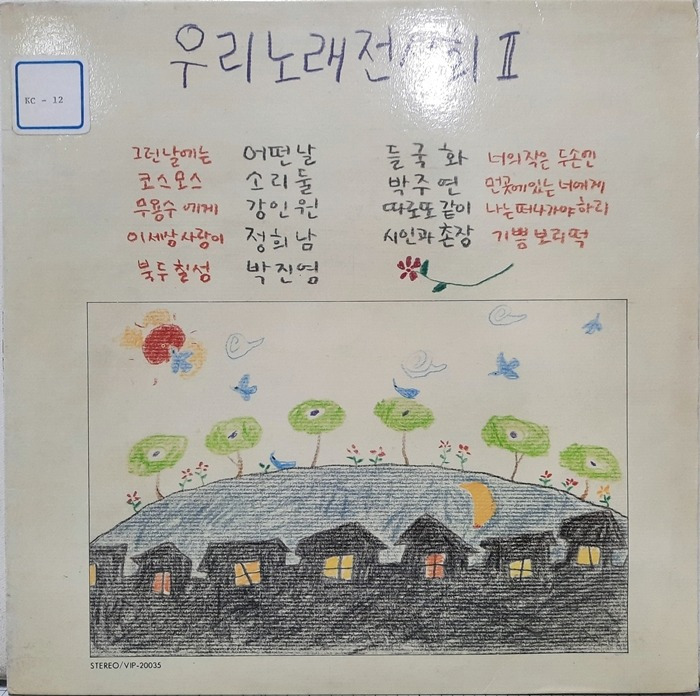 우리노래전시회 II
KC - 12
그런날에는 어떤날
코스모스 소리둘
무용수에게 강인원
이세상사랑이 정희남
북두칠성 박진영
들국화 너의작은두손엔
박주연 먼곳에있는너에게
따로또같이 나는떠나가야하리
시인과촌장 기쁨보리떡
STEREO/VIP-20035